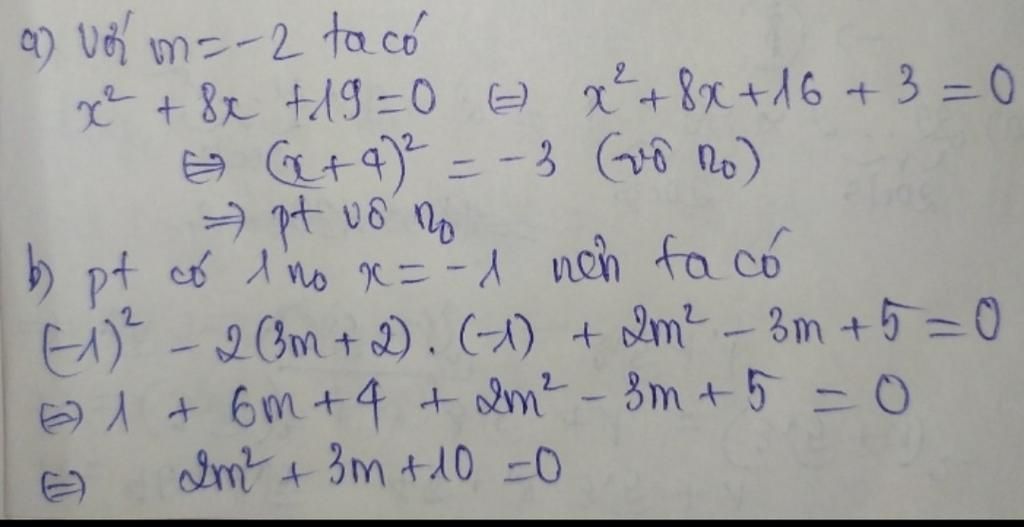 a) Với m = -2 ta có
x² + 8x + 19 = 0 ⇔ x² + 8x + 16 + 3 = 0
⇔ (x+4)² = -3 (vô n₀)
⇒ pt vô n₀
b) pt có 1 n₀ x = -1 nên ta có
(-1)² - 2(3m+2).(-1) + 2m² - 3m + 5 = 0
⇔ 1 + 6m + 4 + 2m² - 3m + 5 = 0
⇔ 2m² + 3m + 10 = 0